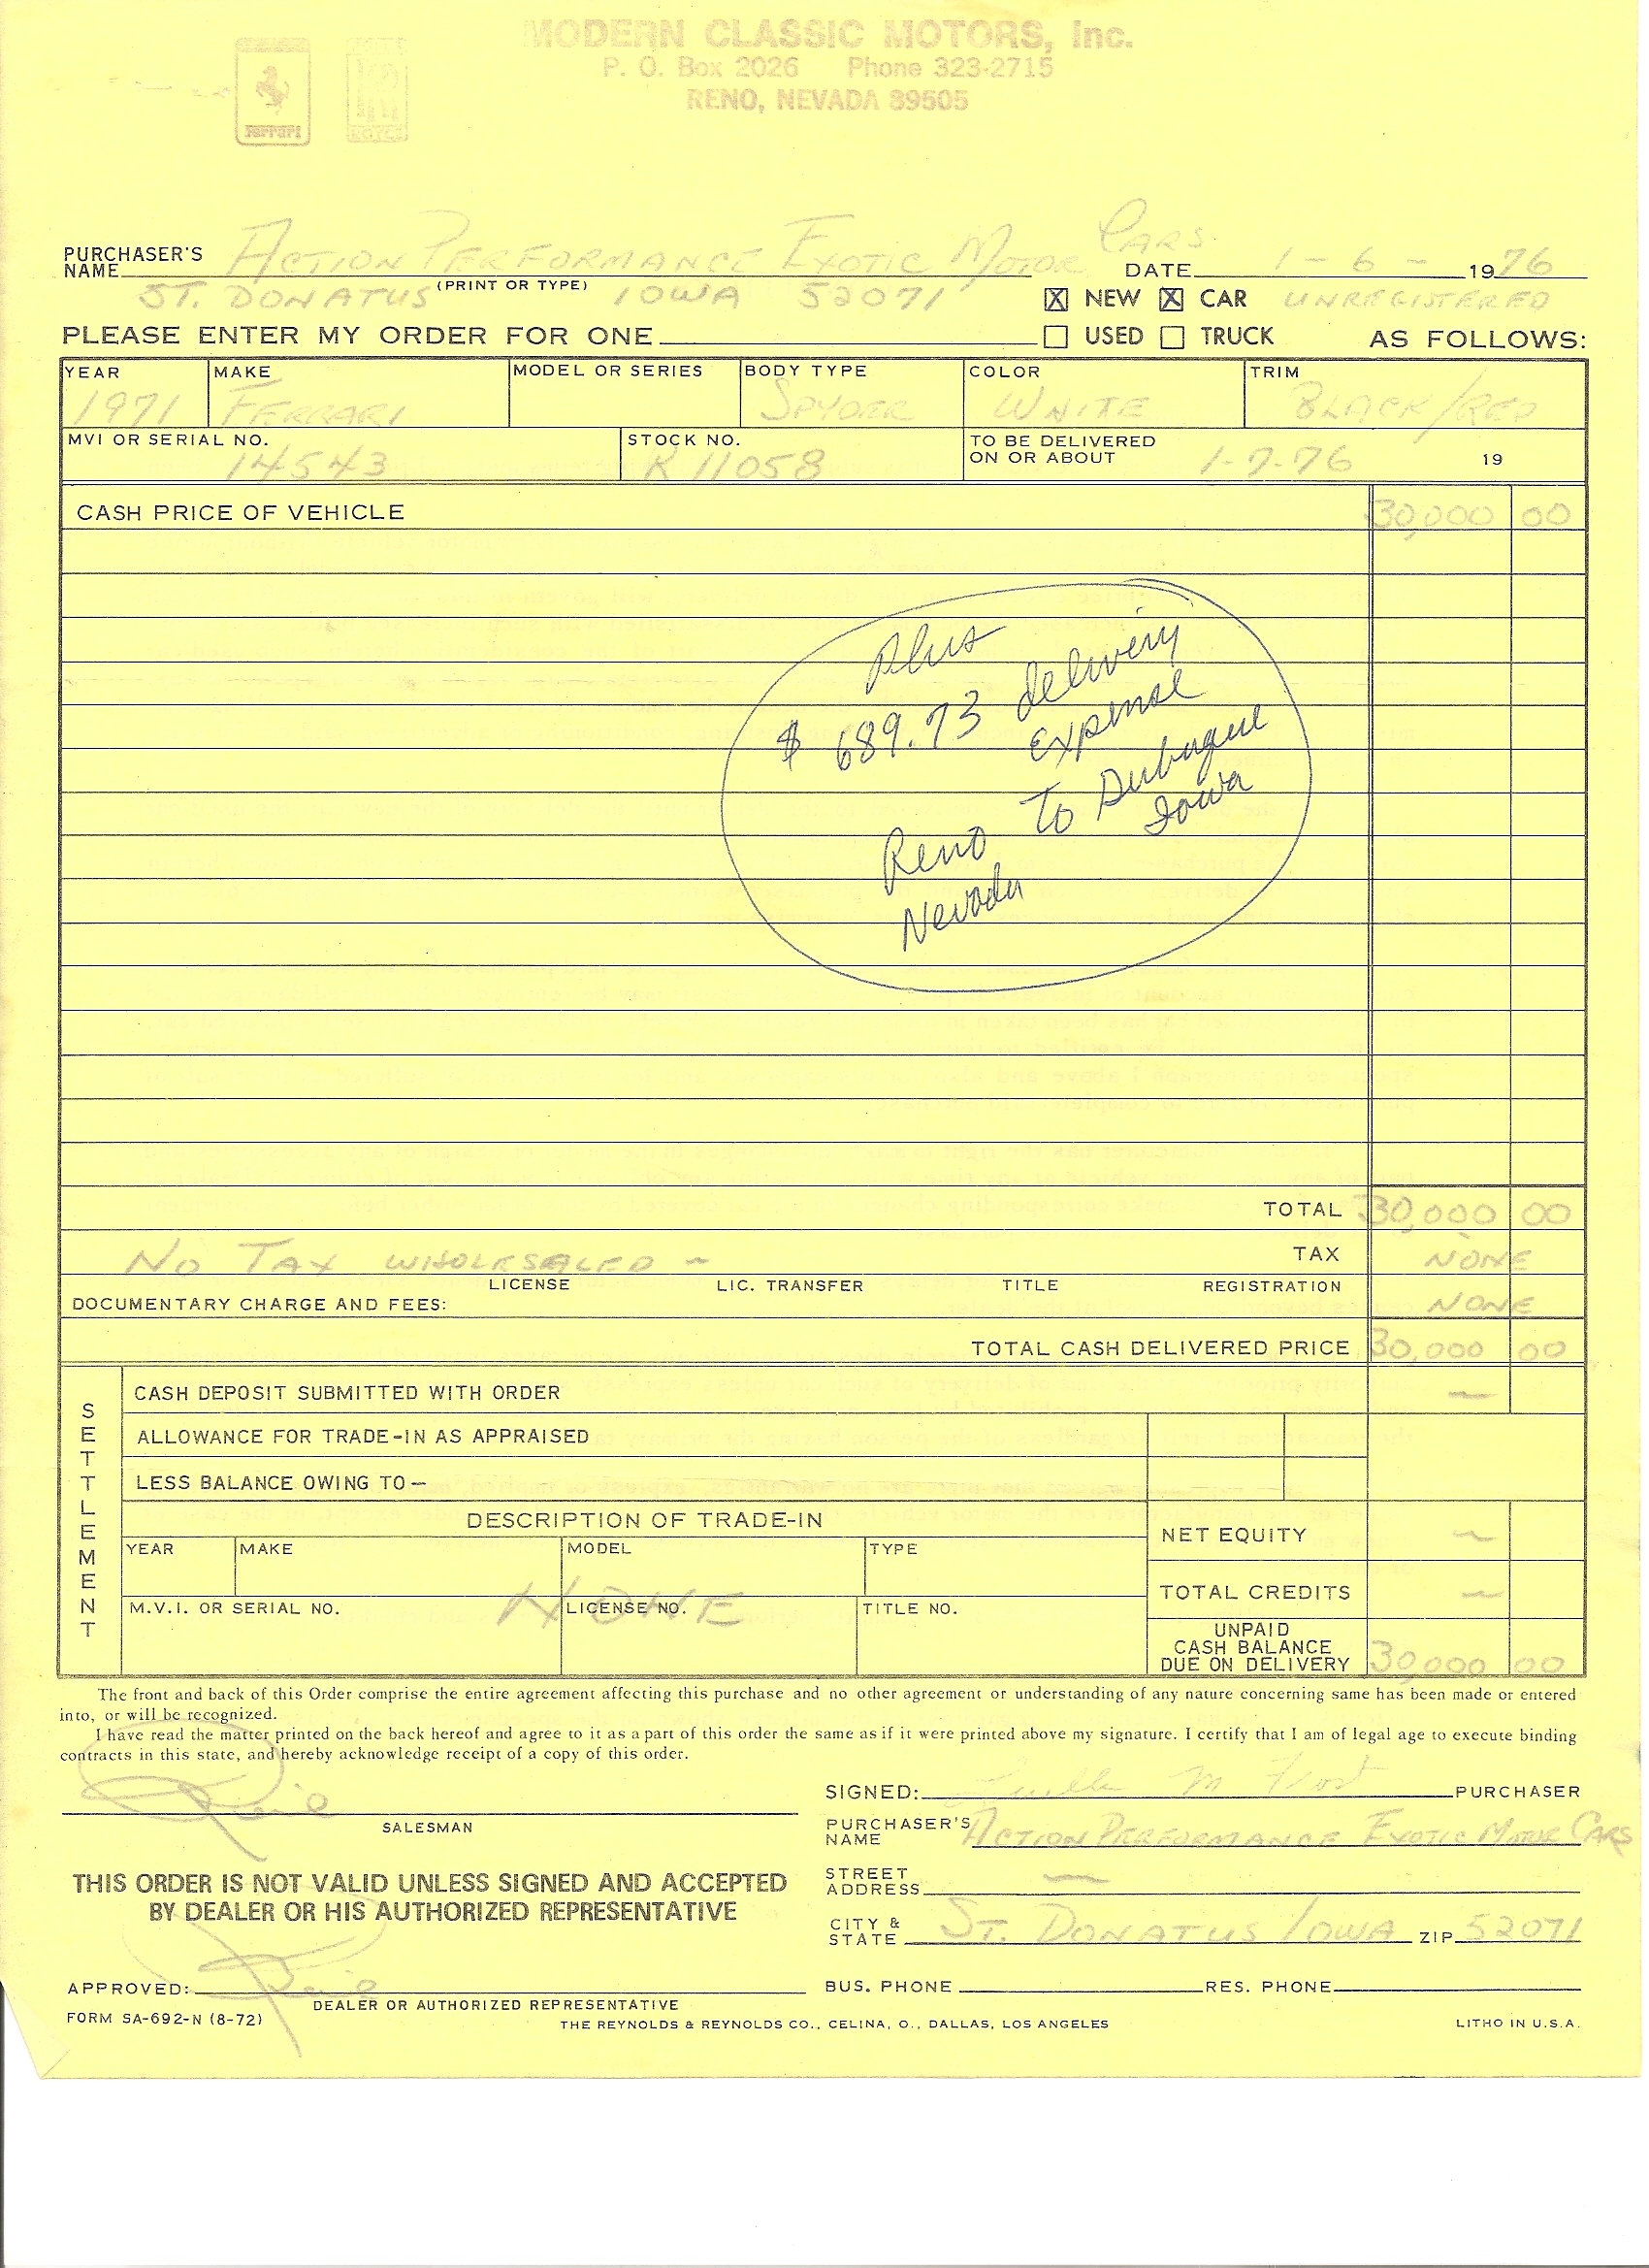 MODERN CLASSIC MOTORS, Inc.
P. O. Box 2026 Phone 323-2715
RENO, NEVADA 89505
Ferrari
ROYCE
PURCHASER'S NAME ACTION PERFORMANCE EXOTIC MOTOR CARS DATE 1-6- 1976
(PRINT OR TYPE)
ST. DONATUS IOWA 52071 X NEW X CAR UNREGISTERED
PLEASE ENTER MY ORDER FOR ONE USED TRUCK AS FOLLOWS:
YEAR MAKE MODEL OR SERIES BODY TYPE COLOR TRIM
1971 FERRARI SPYDER WHITE BLACK/RED
MVI OR SERIAL NO. STOCK NO. TO BE DELIVERED
14543 K 11058 ON OR ABOUT 1-7-76 19
CASH PRICE OF VEHICLE 30,000 00
Plus
$ 689.73 delivery
Expense
To Dubuque
Iowa
Reno
Nevada
TOTAL 30,000 00
NO TAX WHOLESALED - TAX NONE
LICENSE LIC. TRANSFER TITLE REGISTRATION
DOCUMENTARY CHARGE AND FEES: NONE
TOTAL CASH DELIVERED PRICE 30,000 00
SETTLEMENT
CASH DEPOSIT SUBMITTED WITH ORDER —
ALLOWANCE FOR TRADE-IN AS APPRAISED
LESS BALANCE OWING TO—
DESCRIPTION OF TRADE-IN
NET EQUITY —
YEAR MAKE MODEL TYPE
TOTAL CREDITS —
NONE
M.V.I. OR SERIAL NO. LICENSE NO. TITLE NO.
UNPAID
CASH BALANCE
DUE ON DELIVERY 30,000 00
The front and back of this Order comprise the entire agreement affecting this purchase and no other agreement or understanding of any nature concerning same has been made or entered
into, or will be recognized.
I have read the matter printed on the back hereof and agree to it as a part of this order the same as if it were printed above my signature. I certify that I am of legal age to execute binding
contracts in this state, and hereby acknowledge receipt of a copy of this order.
SIGNED: M Frost PURCHASER
SALESMAN
PURCHASER'S NAME ACTION PERFORMANCE EXOTIC MOTOR CARS
STREET ADDRESS —
THIS ORDER IS NOT VALID UNLESS SIGNED AND ACCEPTED
BY DEALER OR HIS AUTHORIZED REPRESENTATIVE
CITY & STATE ST. DONATUS IOWA ZIP 52071
APPROVED: BUS. PHONE RES. PHONE
DEALER OR AUTHORIZED REPRESENTATIVE
FORM SA-692-N (8-72) THE REYNOLDS & REYNOLDS CO., CELINA, O., DALLAS, LOS ANGELES LITHO IN U.S.A.